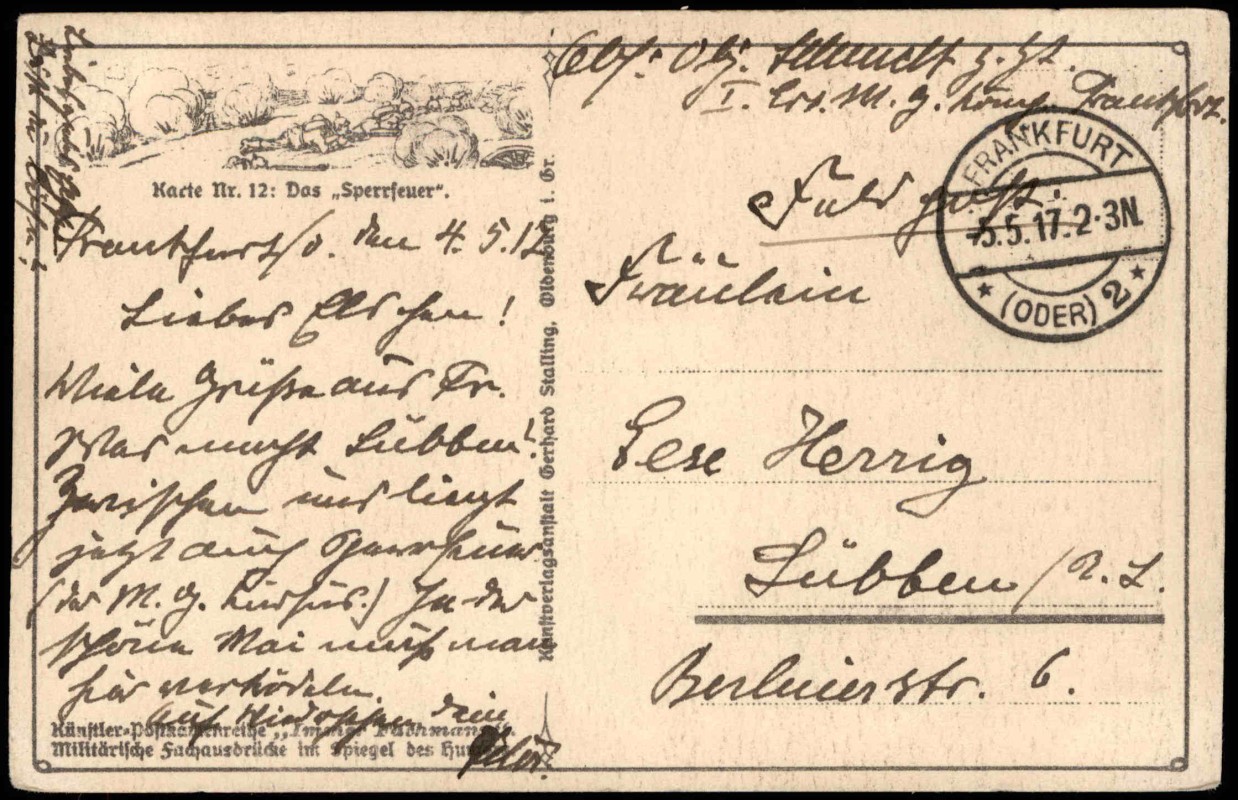 Karte Nr. 12: Das „Sperrfeuer“.
Frankfurt/O. den 4.5.17
Liebes Elschen!
Viele Grüße aus Fr.
Was macht Lübben!
Zwischen uns liegt
jetzt auch Sperrfeuer
(der M. G. Kursus.) Ja der
schöne Mai muß man
hier vertrödeln.
Auf Wiedersehen Dein
Künstler-Postkartenreihe „Immer Fachmann“.
Militärische Fachausdrücke im Spiegel des Humors
Kunstverlagsanstalt Gerhard Stalling, Oldenburg i. Gr.
Abs: Obj. Schmidt z. Zt.
I. Ers. M. G. Komp. Frankf.
Feldpost.
FRANKFURT
-5.5.17.2-3N.
* (ODER) 2 *
Fräulein
Else Herrig
Lübben /N. L.
Berlinerstr. 6.